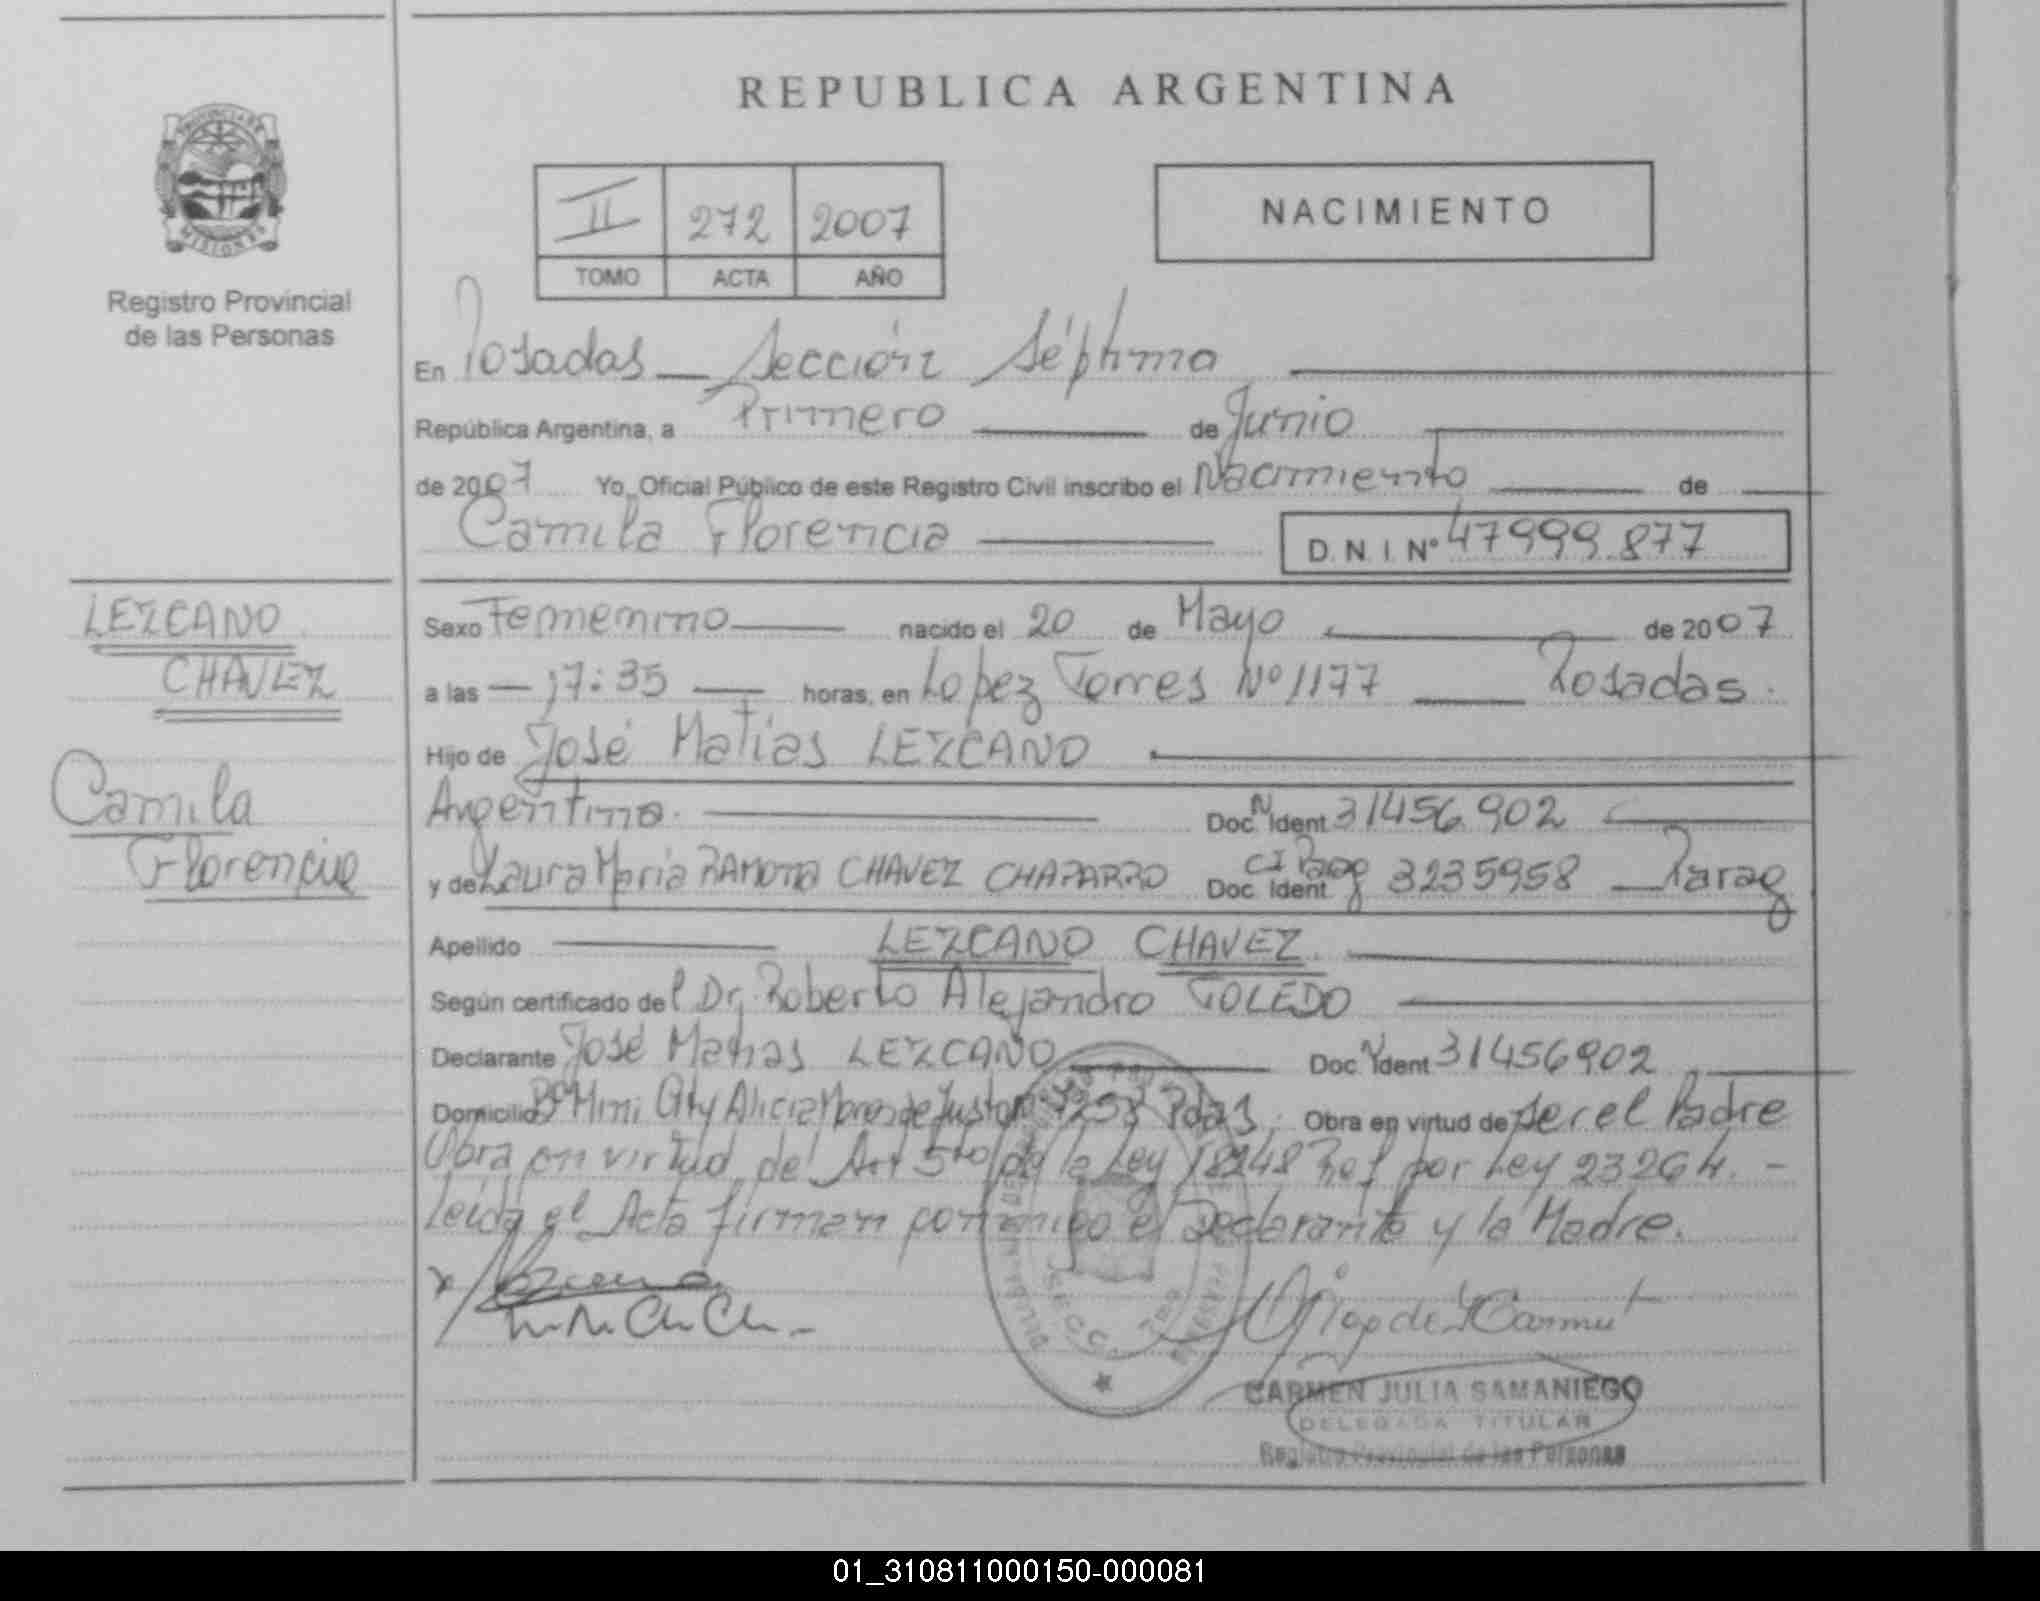 REPUBLICA ARGENTINA
PROVINCIA DE
MISIONES
Registro Provincial
de las Personas
II 272 2007
TOMO ACTA AÑO
NACIMIENTO
En Posadas — Sección Séptima
República Argentina, a Primero de Junio
de 2007 Yo, Oficial Público de este Registro Civil inscribo el Nacimiento de
Camila Florencia
D. N. I. Nº 47999.877
LEZCANO
CHAVEZ
Camila
Florencia
Sexo Femenino nacido el 20 de Mayo de 2007
a las — 17:35 — horas, en Lopez Torres Nº 1177 — Posadas.
Hijo de José Matías LEZCANO
Argentino. Doc. N Ident 31456.902
y de Laura María Ramona CHAVEZ CHAPARRO Doc. Ident CI Parag 3235958 — Parag
Apellido LEZCANO CHAVEZ.
Según certificado del Dr. Roberto Alejandro TOLEDO
Declarante José Matias LEZCANO Doc. N Ident 31456902
Domicilio Bº Mini City Alicia Moreau de Justo Pdas. Obra en virtud de ser el Padre
Obra en virtud del Art 5to de la Ley 18248 Ref por Ley 23264. -
Leída el Acta firman conmigo el Declarante y la Madre.
CARMEN JULIA SAMANIEGO
DELEGADA TITULAR
Registro Provincial de las Personas
01_310811000150-000081